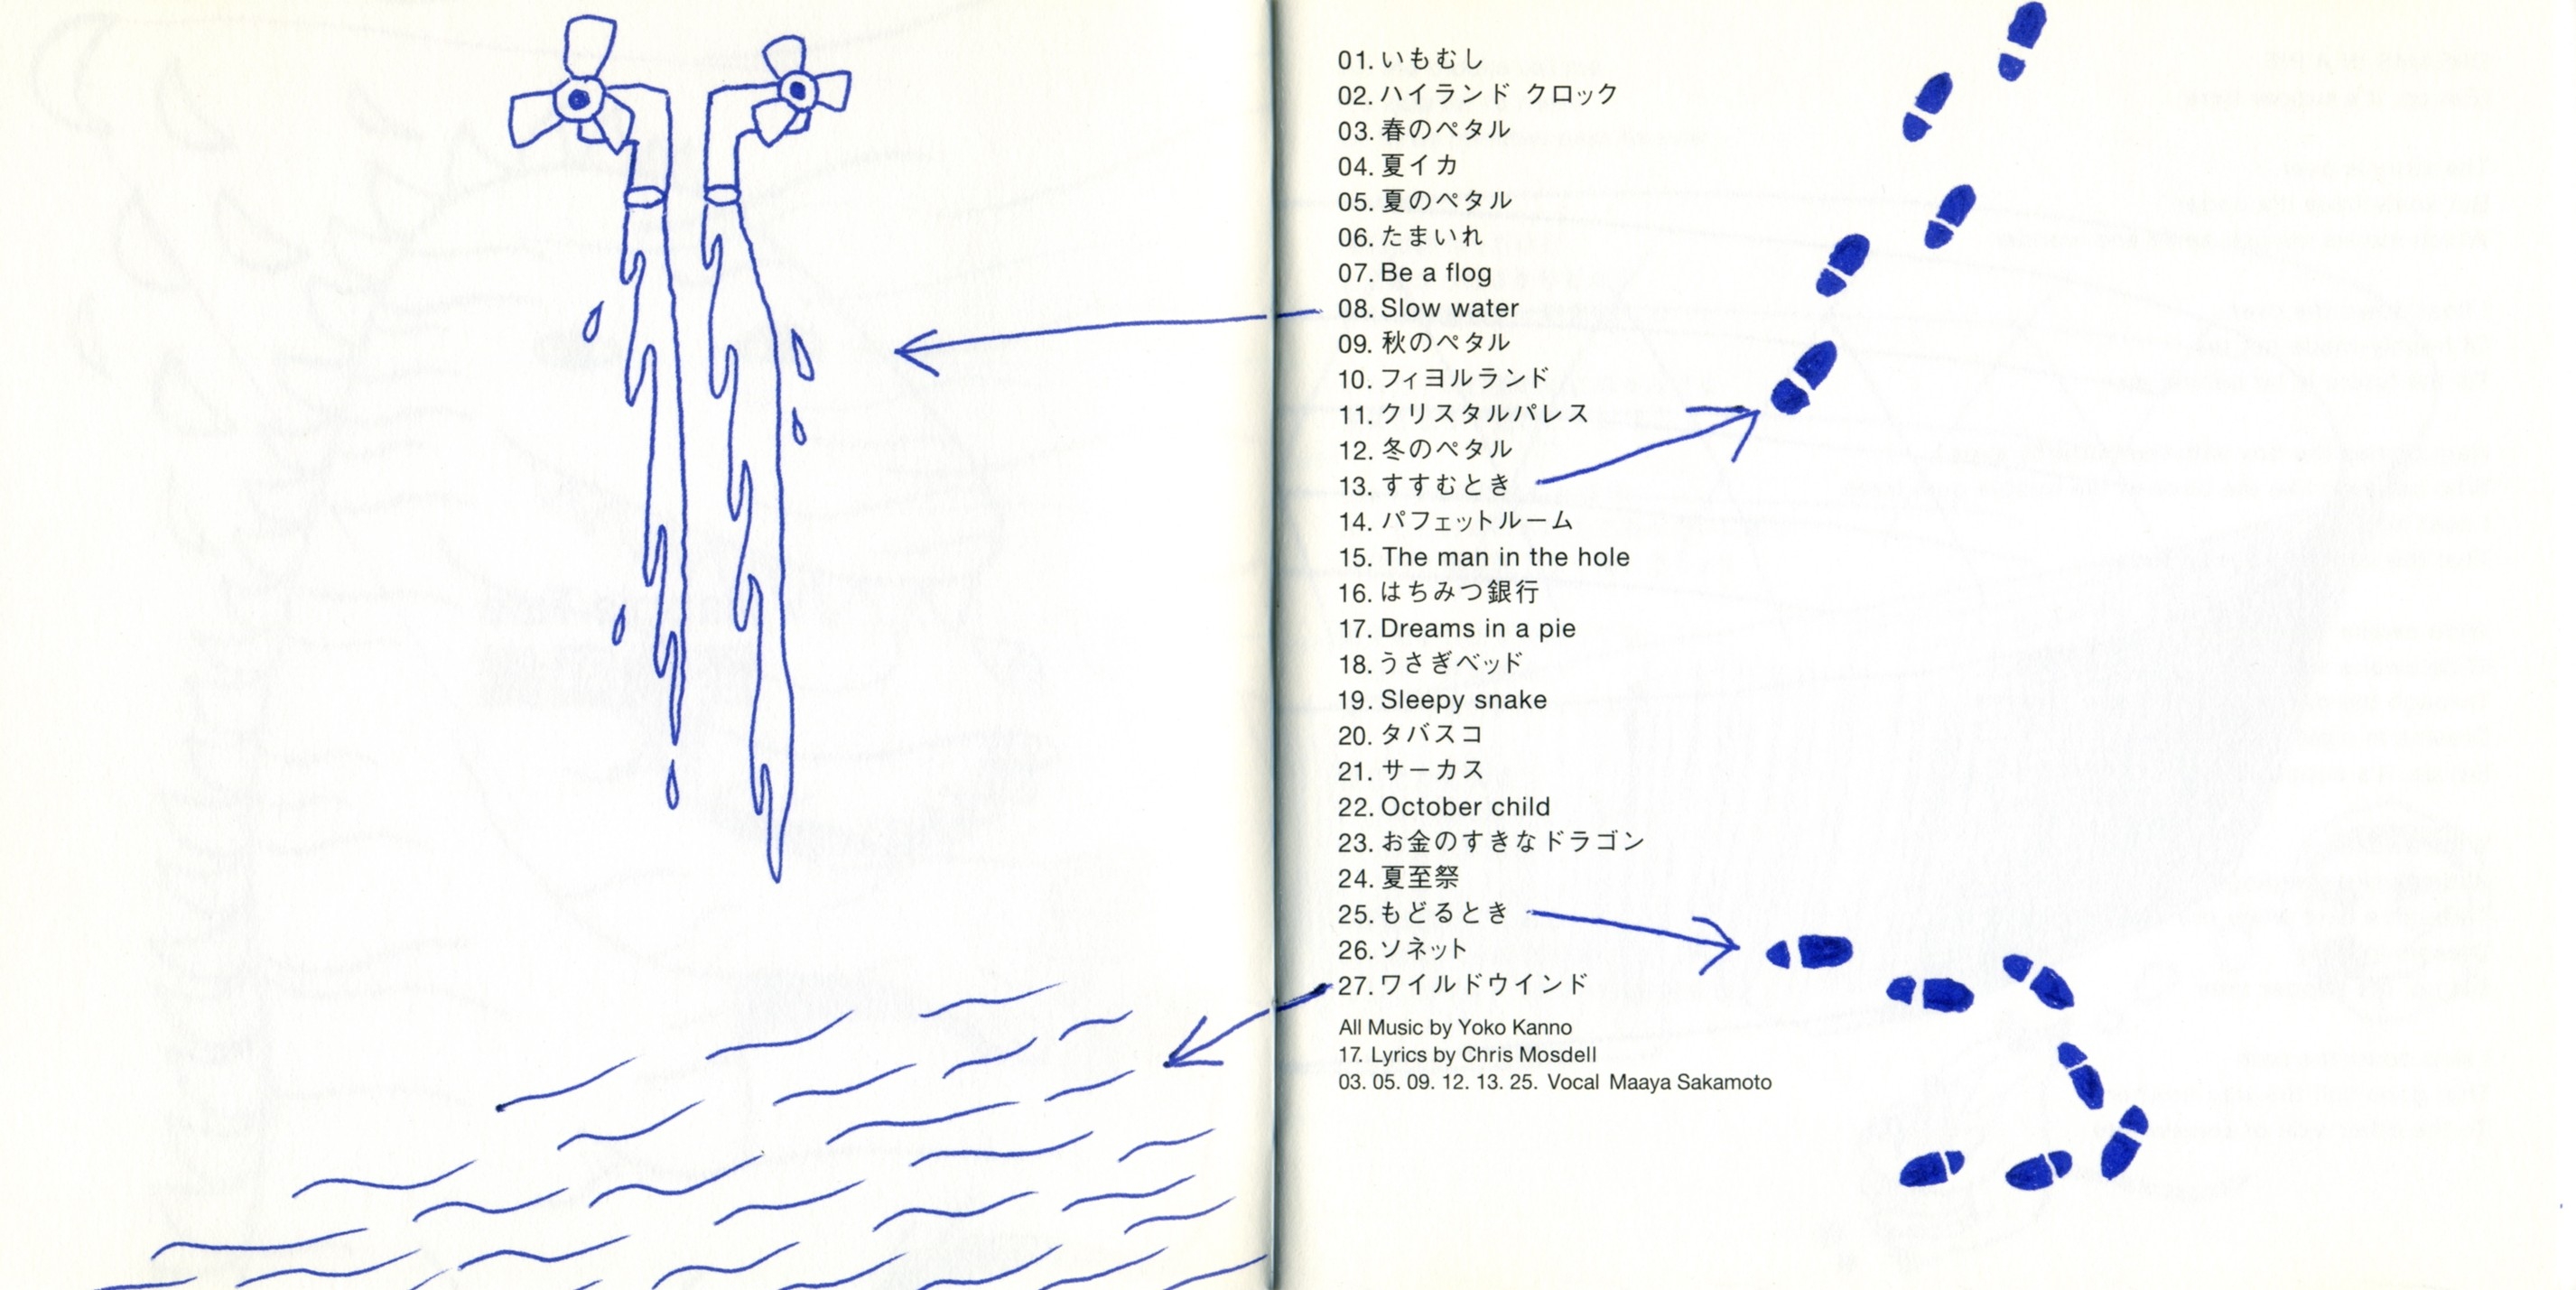 01. いもむし
02. ハイランド クロック
03. 春のペタル
04. 夏イカ
05. 夏のペタル
06. たまいれ
07. Be a flog
08. Slow water
09. 秋のペタル
10. フィヨルランド
11. クリスタルパレス
12. 冬のペタル
13. すすむとき
14. パフェットルーム
15. The man in the hole
16. はちみつ銀行
17. Dreams in a pie
18. うさぎベッド
19. Sleepy snake
20. タバスコ
21. サーカス
22. October child
23. お金のすきなドラゴン
24. 夏至祭
25. もどるとき
26. ソネット
27. ワイルドウインド
All Music by Yoko Kanno
17. Lyrics by Chris Mosdell
03. 05. 09. 12. 13. 25. Vocal Maaya Sakamoto